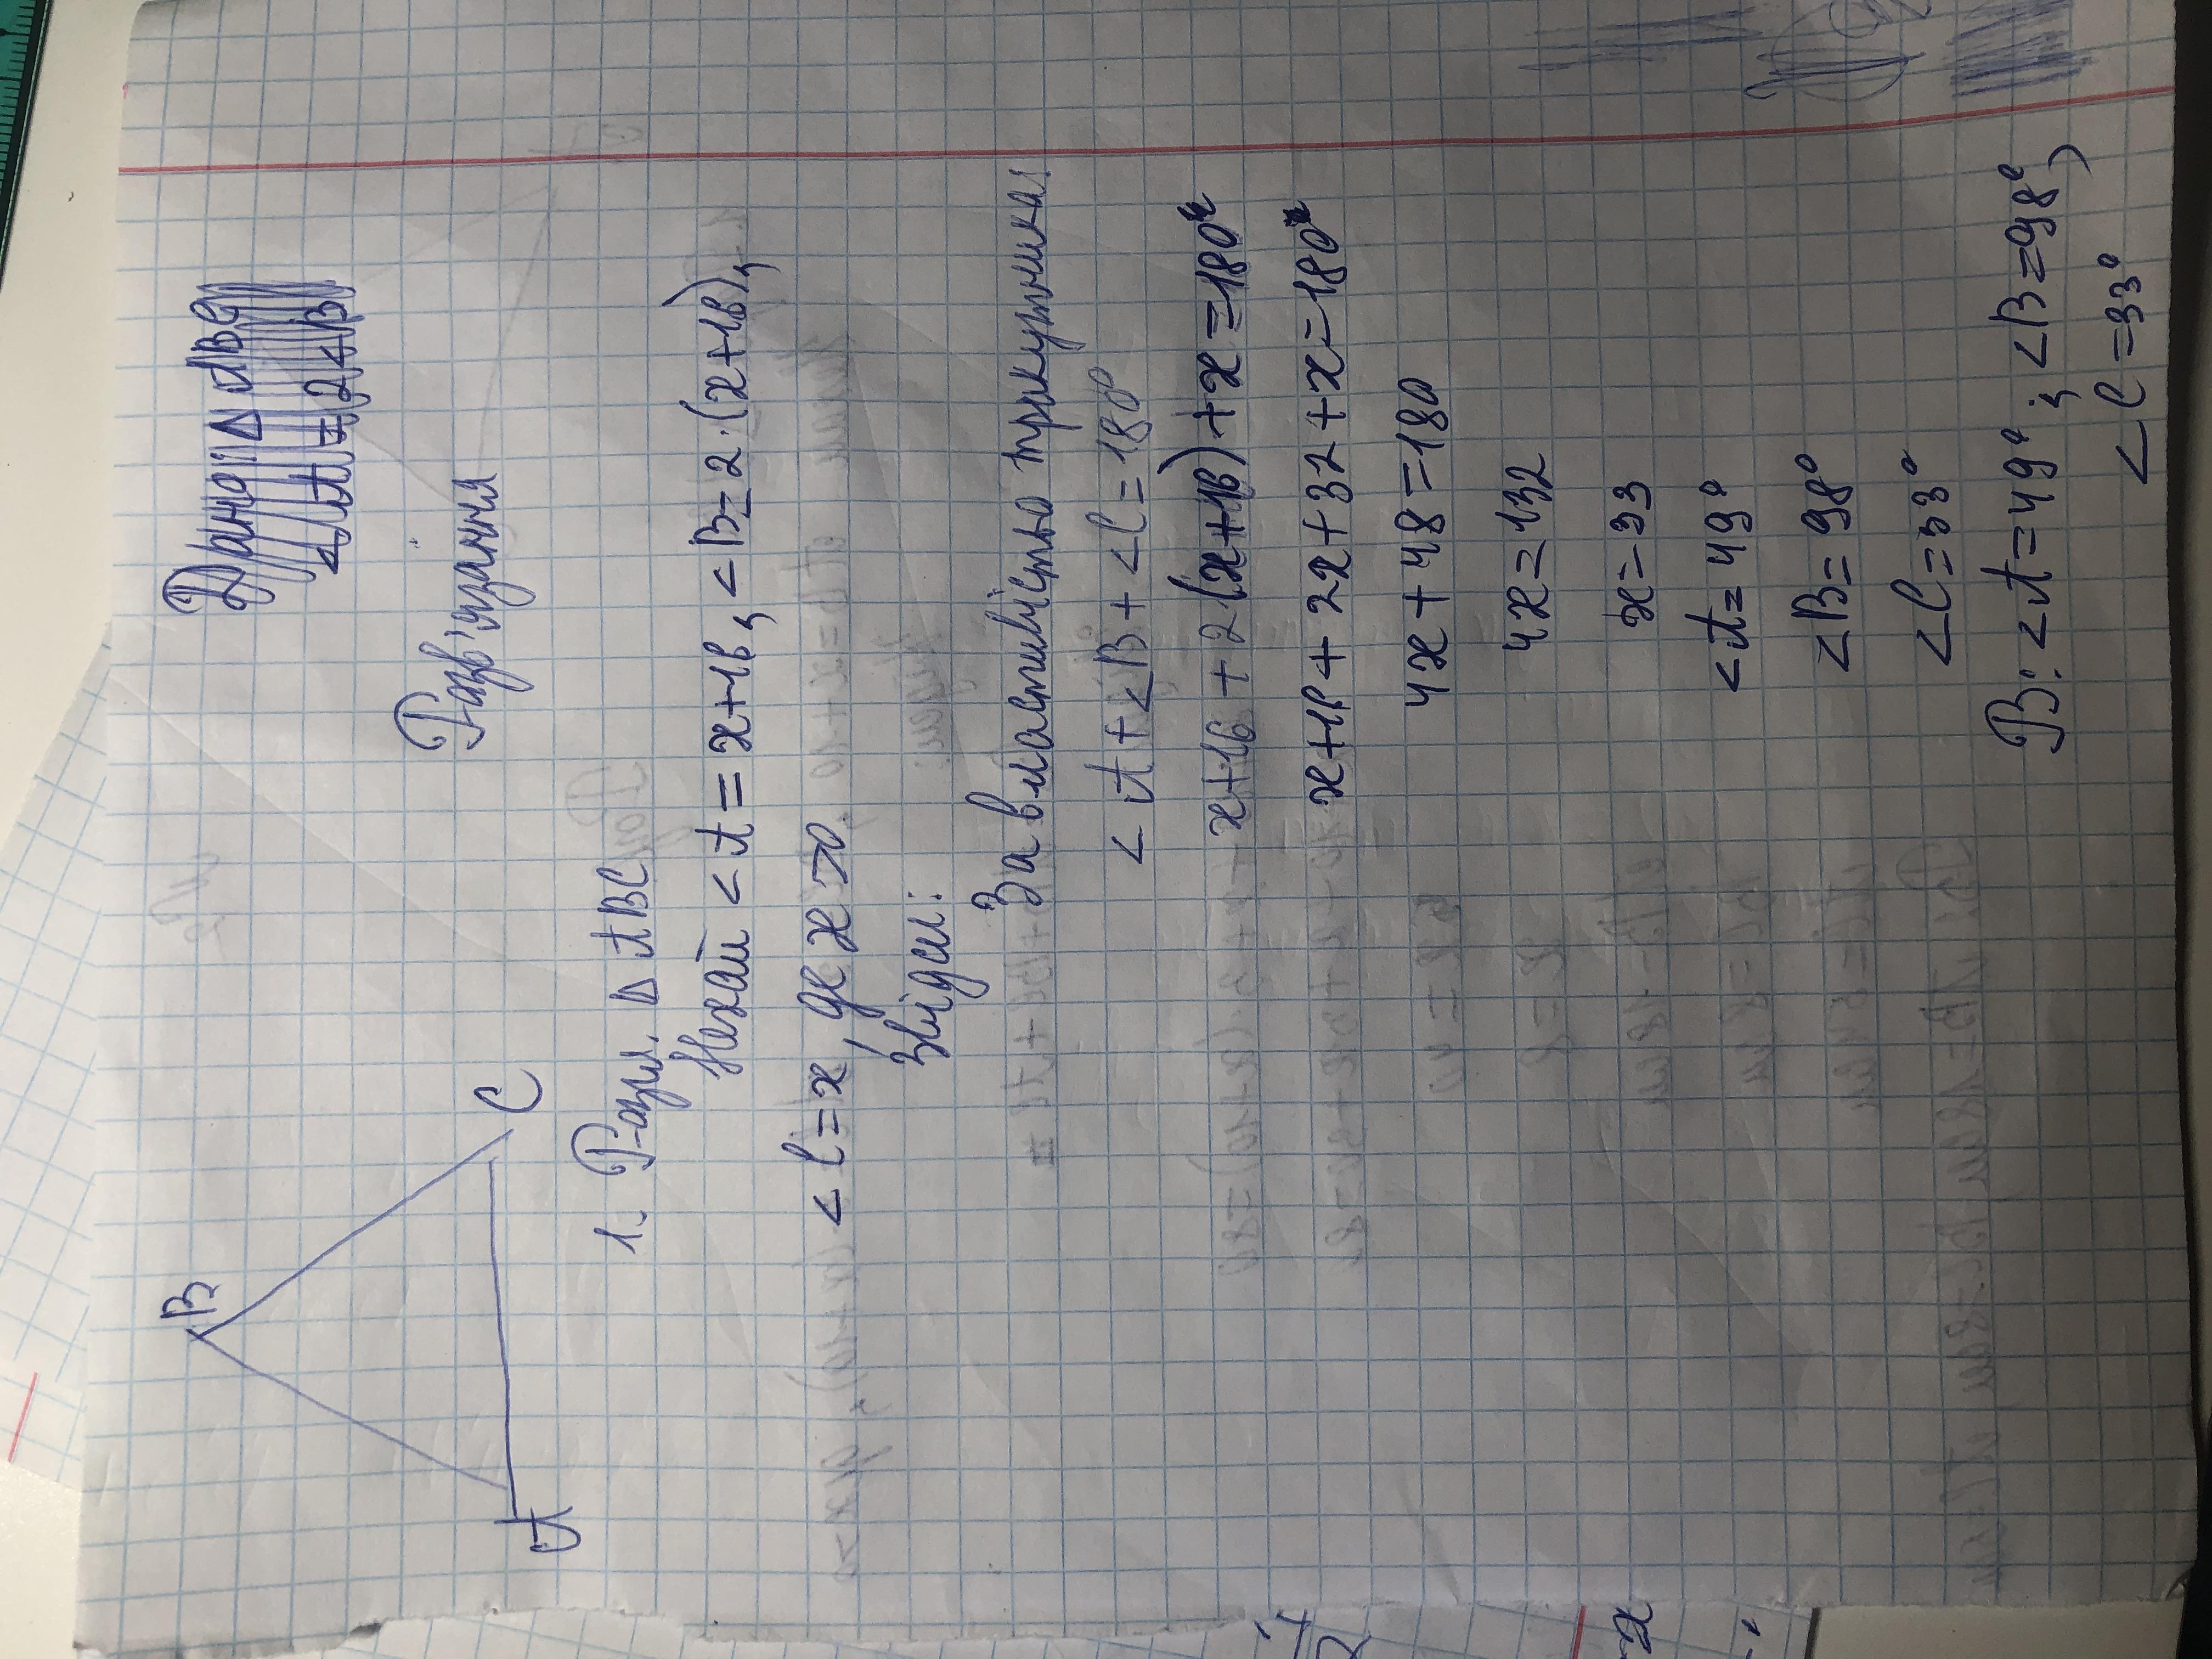 B
C
A
Розв'язання
1. Розгл. △ ABC
Нехай < A = x+16, < B = 2·(x+16),
< C = x, де x > 0
Звідси:
За властивістю трикутника:
< A + < B + < C = 180°
x+16 + 2(x+16) + x = 180
x+16 + 2x + 32 + x = 180
4x + 48 = 180
4x = 132
x = 33
< A = 49°
< B = 98°
< C = 33°
В: < A = 49°; < B = 98°;
< C = 33°